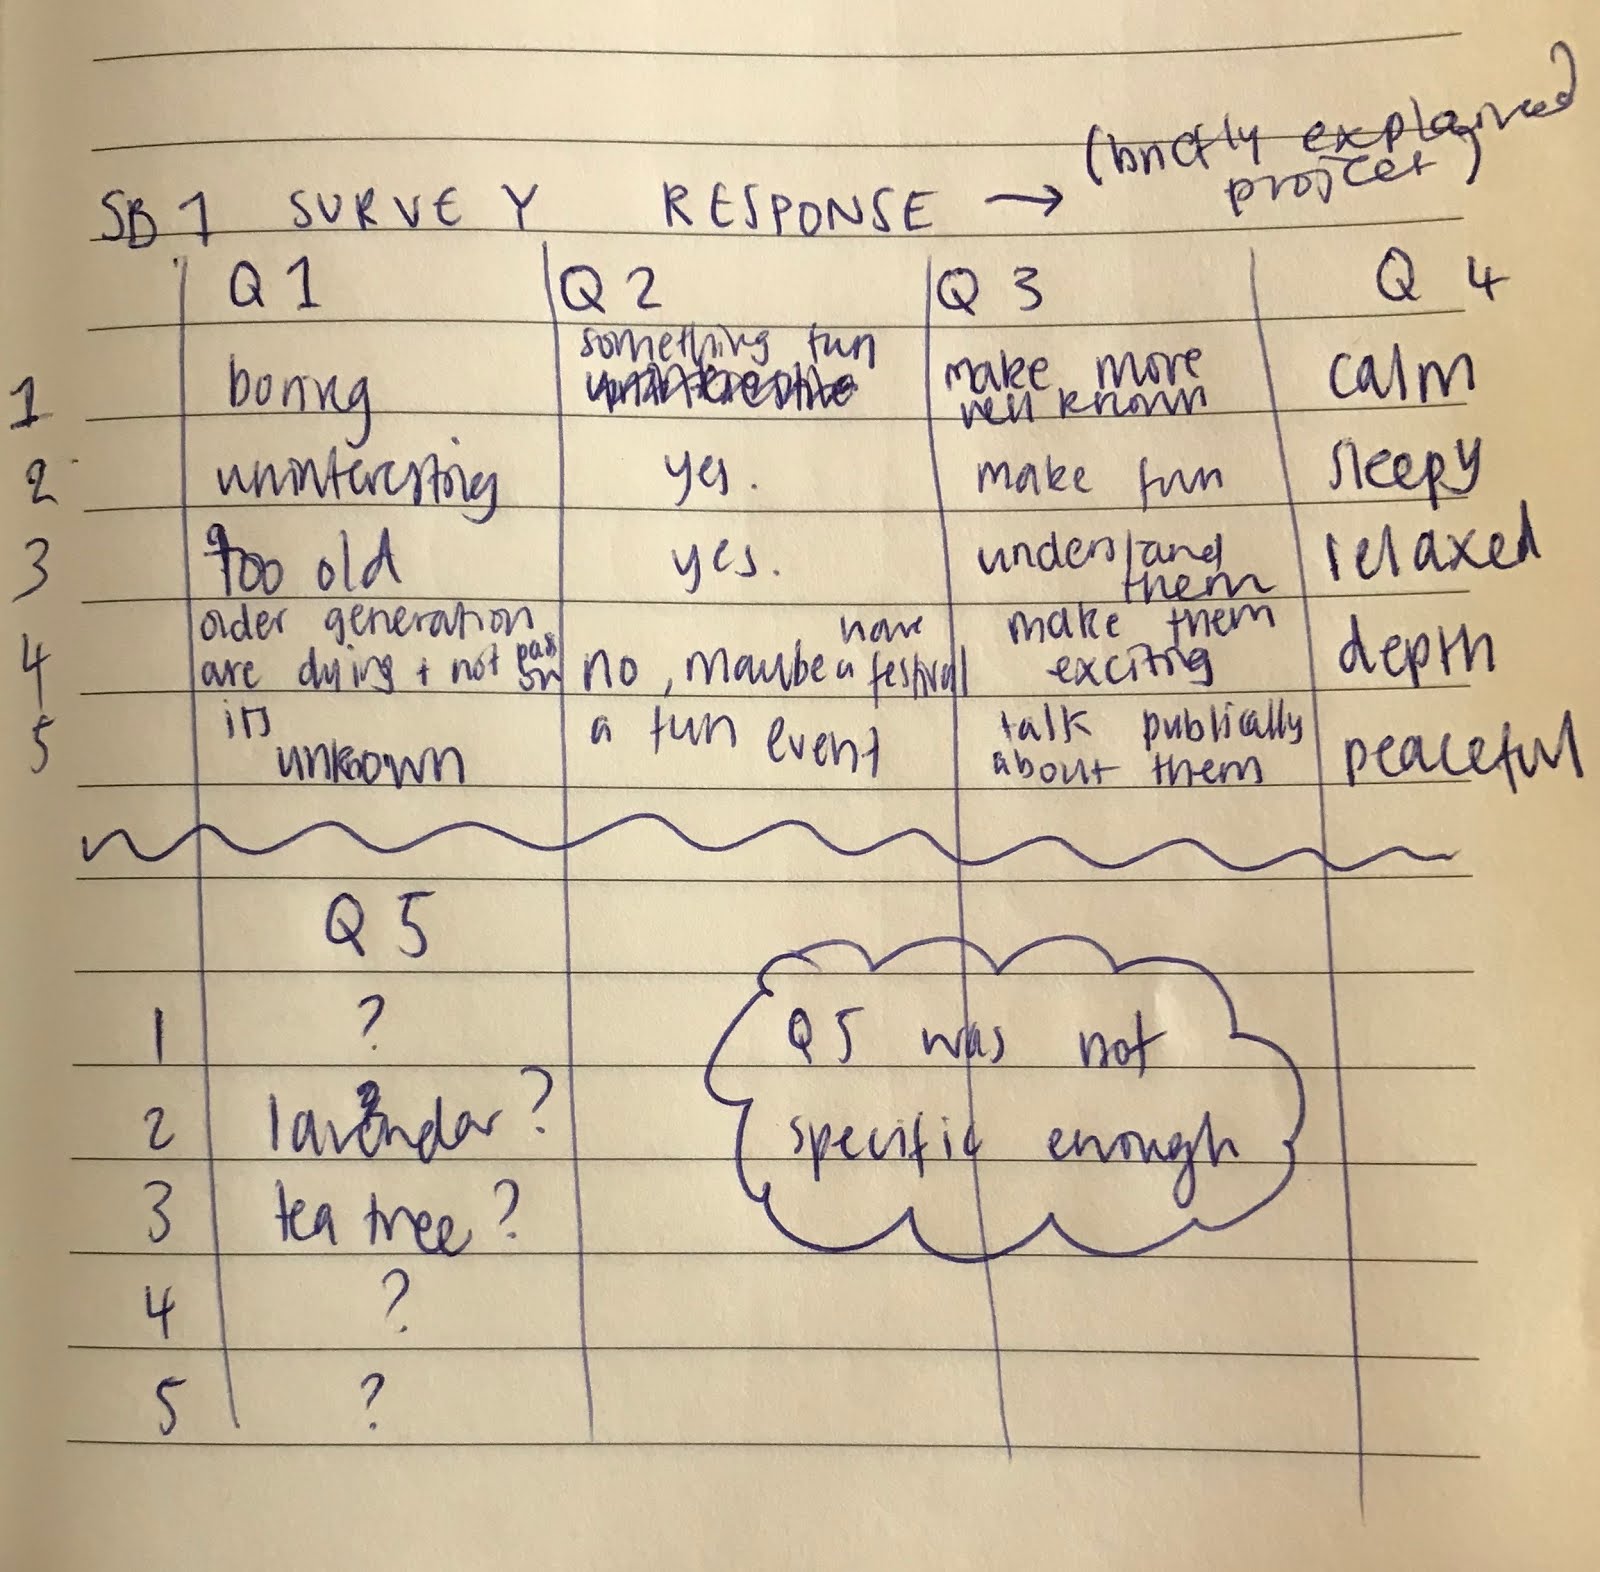 (briefly explained
project)
SB 1 SURVEY RESPONSE →
Q 1 Q 2 Q 3 Q 4
1 boring something fun make more well known calm
2 uninteresting yes. make fun sleepy
3 too old yes. understand them relaxed
4 older generation are dying + not pass on no, maybe have a festival make them exciting depth
5 its unknown a fun event talk publically about them peaceful
Q 5
1 ?
2 lavendar?
3 tea tree?
4 ?
5 ?
Q5 was not
specific enough